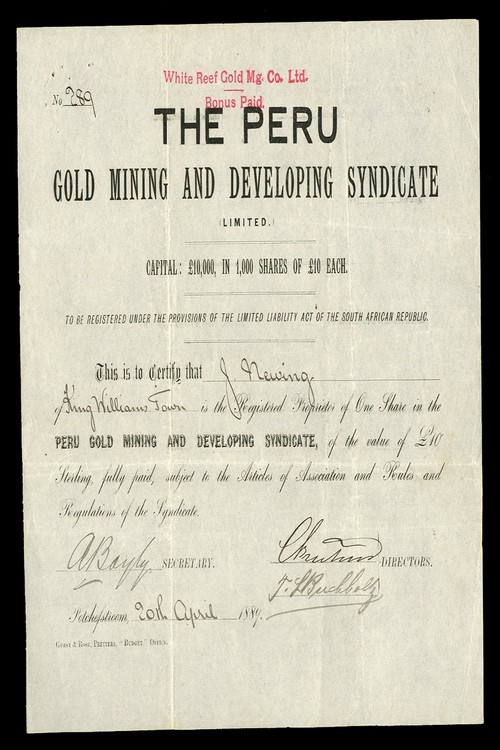 White Reef Gold Mg. Co. Ltd.
Bonus Paid.
No 289
THE PERU
GOLD MINING AND DEVELOPING SYNDICATE
(LIMITED.)
CAPITAL: £10,000, IN 1,000 SHARES OF £10 EACH.
TO BE REGISTERED UNDER THE PROVISIONS OF THE LIMITED LIABILITY ACT OF THE SOUTH AFRICAN REPUBLIC.
This is to Certify that J Newing.
of King Williams Town is the Registered Proprietor of One Share in the
PERU GOLD MINING AND DEVELOPING SYNDICATE, of the value of £10
Sterling, fully paid, subject to the Articles of Association and Rules and
Regulations of the Syndicate.
A Bayly SECRETARY.
DIRECTORS.
T. Buchholz
Potchefstroom, 20th April 1889.
GUEST & ROSE, PRINTERS, "BUDGET" OFFICE.